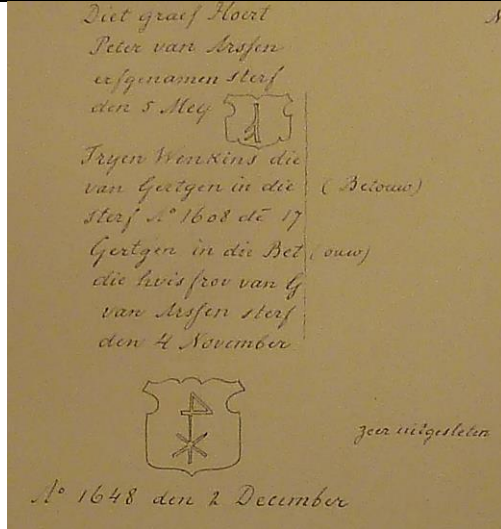 Diet graef Hoert
Peter van Arssen
erfgenamen sterf
den 5 Mey
Tryen Wenkins die
van Gertgen in die ( Betouw)
sterf Aº 1608 dē 17
Gertgen in die Bet(ouw)
die huisfrov van G
van Arssen sterf
den 4 November
zeer uitgesleten
Aº 1648 den 2 December